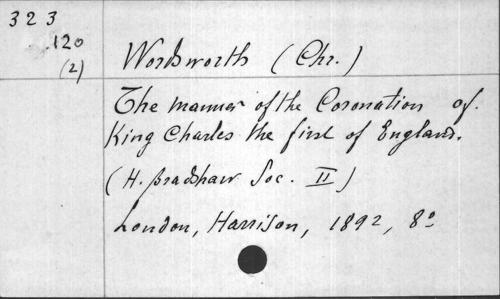 323
.120
(2)
Wordsworth (Chr.)
The manner of the Coronation of
King Charles the first of England.
(H. Bradshaw Soc. II)
London, Harrison, 1892, 8º